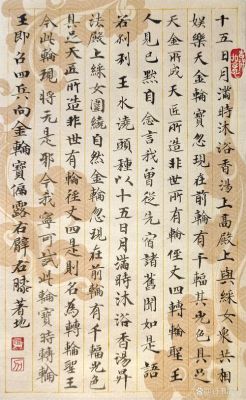 十五日月滿時沐浴香湯上高殿上與婇女衆共相
娛樂天金輪寶忽現在前有千輻其光色具足
天金所成天匠所造非世有輪徑丈四轉輪聖王
人見已默自念言我曾從先宿諸舊聞如是語
若刹利王水澆頭種以十五日月滿時沐浴香湯昇
法殿上婇女圍繞自然金輪忽現在前輪有千輻光色
具足天匠所造非世有輪徑丈四是則名為轉輪聖王
今此輪現將無是耶今我寧可試此輪寶時轉輪
王即召四兵向金輪寶偏露右臂右膝著地